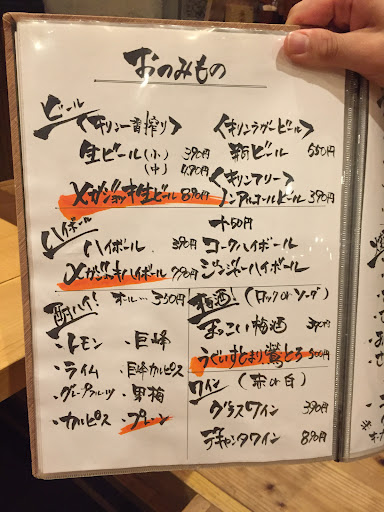 おのみもの
ビール
〈キリン一番搾り〉
生ビール(小) 390円
(中) 490円
メガジョッキ生ビール 890円
〈キリンラガービール〉
瓶ビール 550円
〈キリンフリー〉
ノンアルコールビール 390円
ハイボール
ハイボール 390円
メガジョッキハイボール 790円
+50円
コークハイボール
ジンジャーハイボール
酎ハイ! オール… 350円
・レモン
・ライム
・グレープフルーツ
・カルピス
・巨峰
・巨峰カルピス
・男梅
・プレーン
梅酒! (ロック or ソーダ)
まっこい梅酒 390円
うぐいすしまり鶯とろ 500円
ワイン (赤 or 白)
グラスワイン 390円
デキャンタワイン 890円